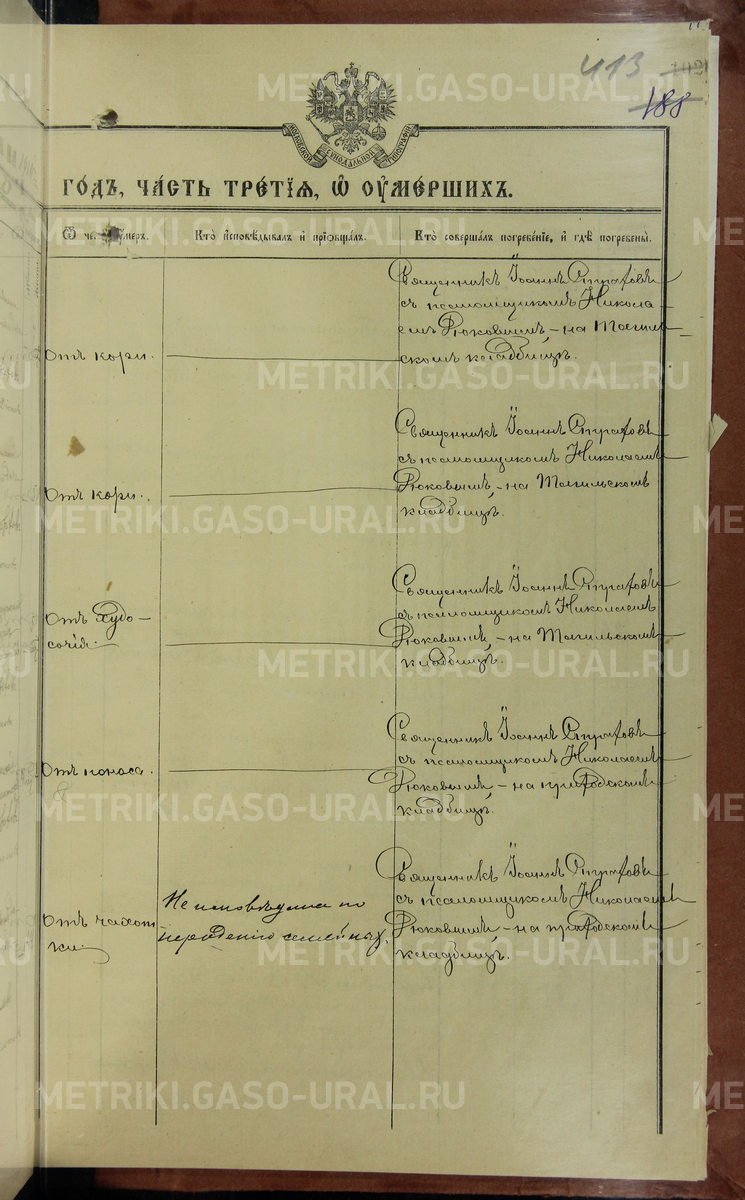 413
188
МОСКОВСКОЙ СѴНОДАЛЬНОЙ ТИПОГРАФІИ
ГО́ДЪ, ЧА́СТЬ ТРЕ́ТІѦ, Ѡ ОУМЕ́РШИХЪ.
Ѿ че оумеръ.
Кто и҆сповѣ́дывалъ и҆ приѻбща́лъ.
Кто̀ соверша́лъ погребе́ніе, и҆ гдѣ̀ погребены̀.
Отъ кори.
Священникъ Іоаннъ
съ псаломщикомъ Никола-
емъ Рюковымъ, - на Тагиль-
скомъ кладбищѣ.
Отъ кори.
Священникъ Іоаннъ
съ псаломщикомъ Николаемъ
Рюковымъ, - на Тагильскомъ
кладбищѣ.
Отъ Худо-
сочія.
Священникъ Іоаннъ
съ псаломщикомъ Николаемъ
Рюковымъ, - на Тагильскомъ
кладбищѣ.
Отъ поноса.
Священникъ Іоаннъ
съ псаломщикомъ Николаемъ
Рюковымъ - на приходскомъ
кладбищѣ.
Отъ чахот
ки.
Не исповѣдана по
нерадѣнію семейныхъ.
Священникъ Іоаннъ
съ псаломщикомъ Николаемъ
Рюковымъ - на приходскомъ
кладбищѣ.
METRIKI.GASO-URAL.RU